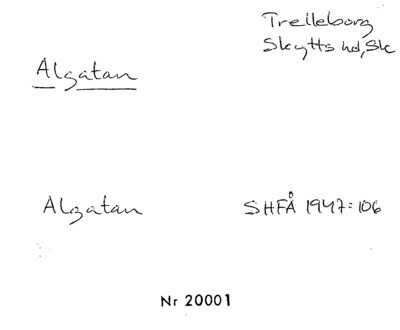 Trelleborg
Skytts hd, Sk
Algatan
Algatan SHFÅ 1947:106
Nr 20001